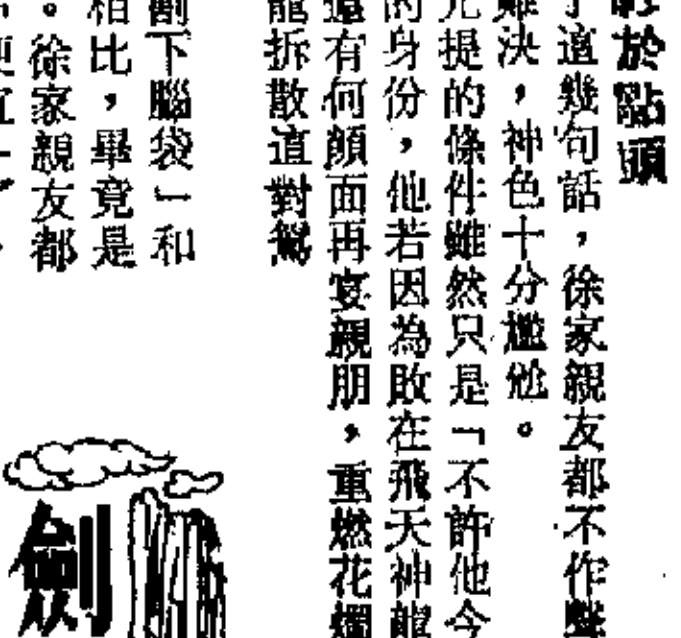 於點頭
了這幾句話，徐家親友都不作聲
難決，神色十分尷尬。
元提的條件雖然只是「不許他今
的身份，他若因為敗在飛天神龍
還有何顏面再宴親朋，重燃花燭
龍拆散這對鴛
割下腦袋」和
相比，畢竟是
。徐家親友都
劍